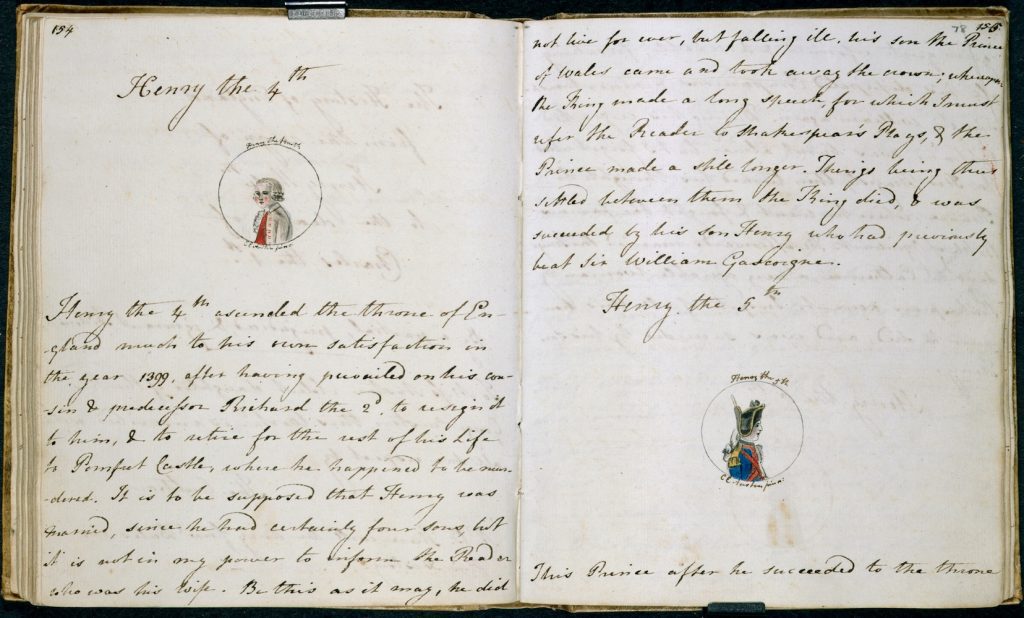 154
Henry the 4th
Henry the Fourth
C E Austen pinx.
Henry the 4th ascended the throne of En-
-gland much to his own satisfaction in
the year 1399, after having prevailed on his cou-
-sin & predecessor Richard the 2d, to resign it
to him, & to retire for the rest of his Life
to Pomfret Castle, where he happened to be mur-
-dered. It is to be supposed that Henry was
married, since he had certainly four sons, but
it is not in my power to inform the Reader
who was his Wife. Be this as it may, he did
78 155
not live for ever, but falling ill, his son the Prince
of Wales came and took away the crown; whereupon
the King made a long speech, for which I must
refer the Reader to Shakespear's Plays, & the
Prince made a still longer. Things being thus
settled between them the King died, & was
succeeded by his son Henry who had previously
beat Sir William Gascoigne.
Henry the 5th
Henry the 5th
C E Austen pinx.
This Prince after he succeeded to the throne